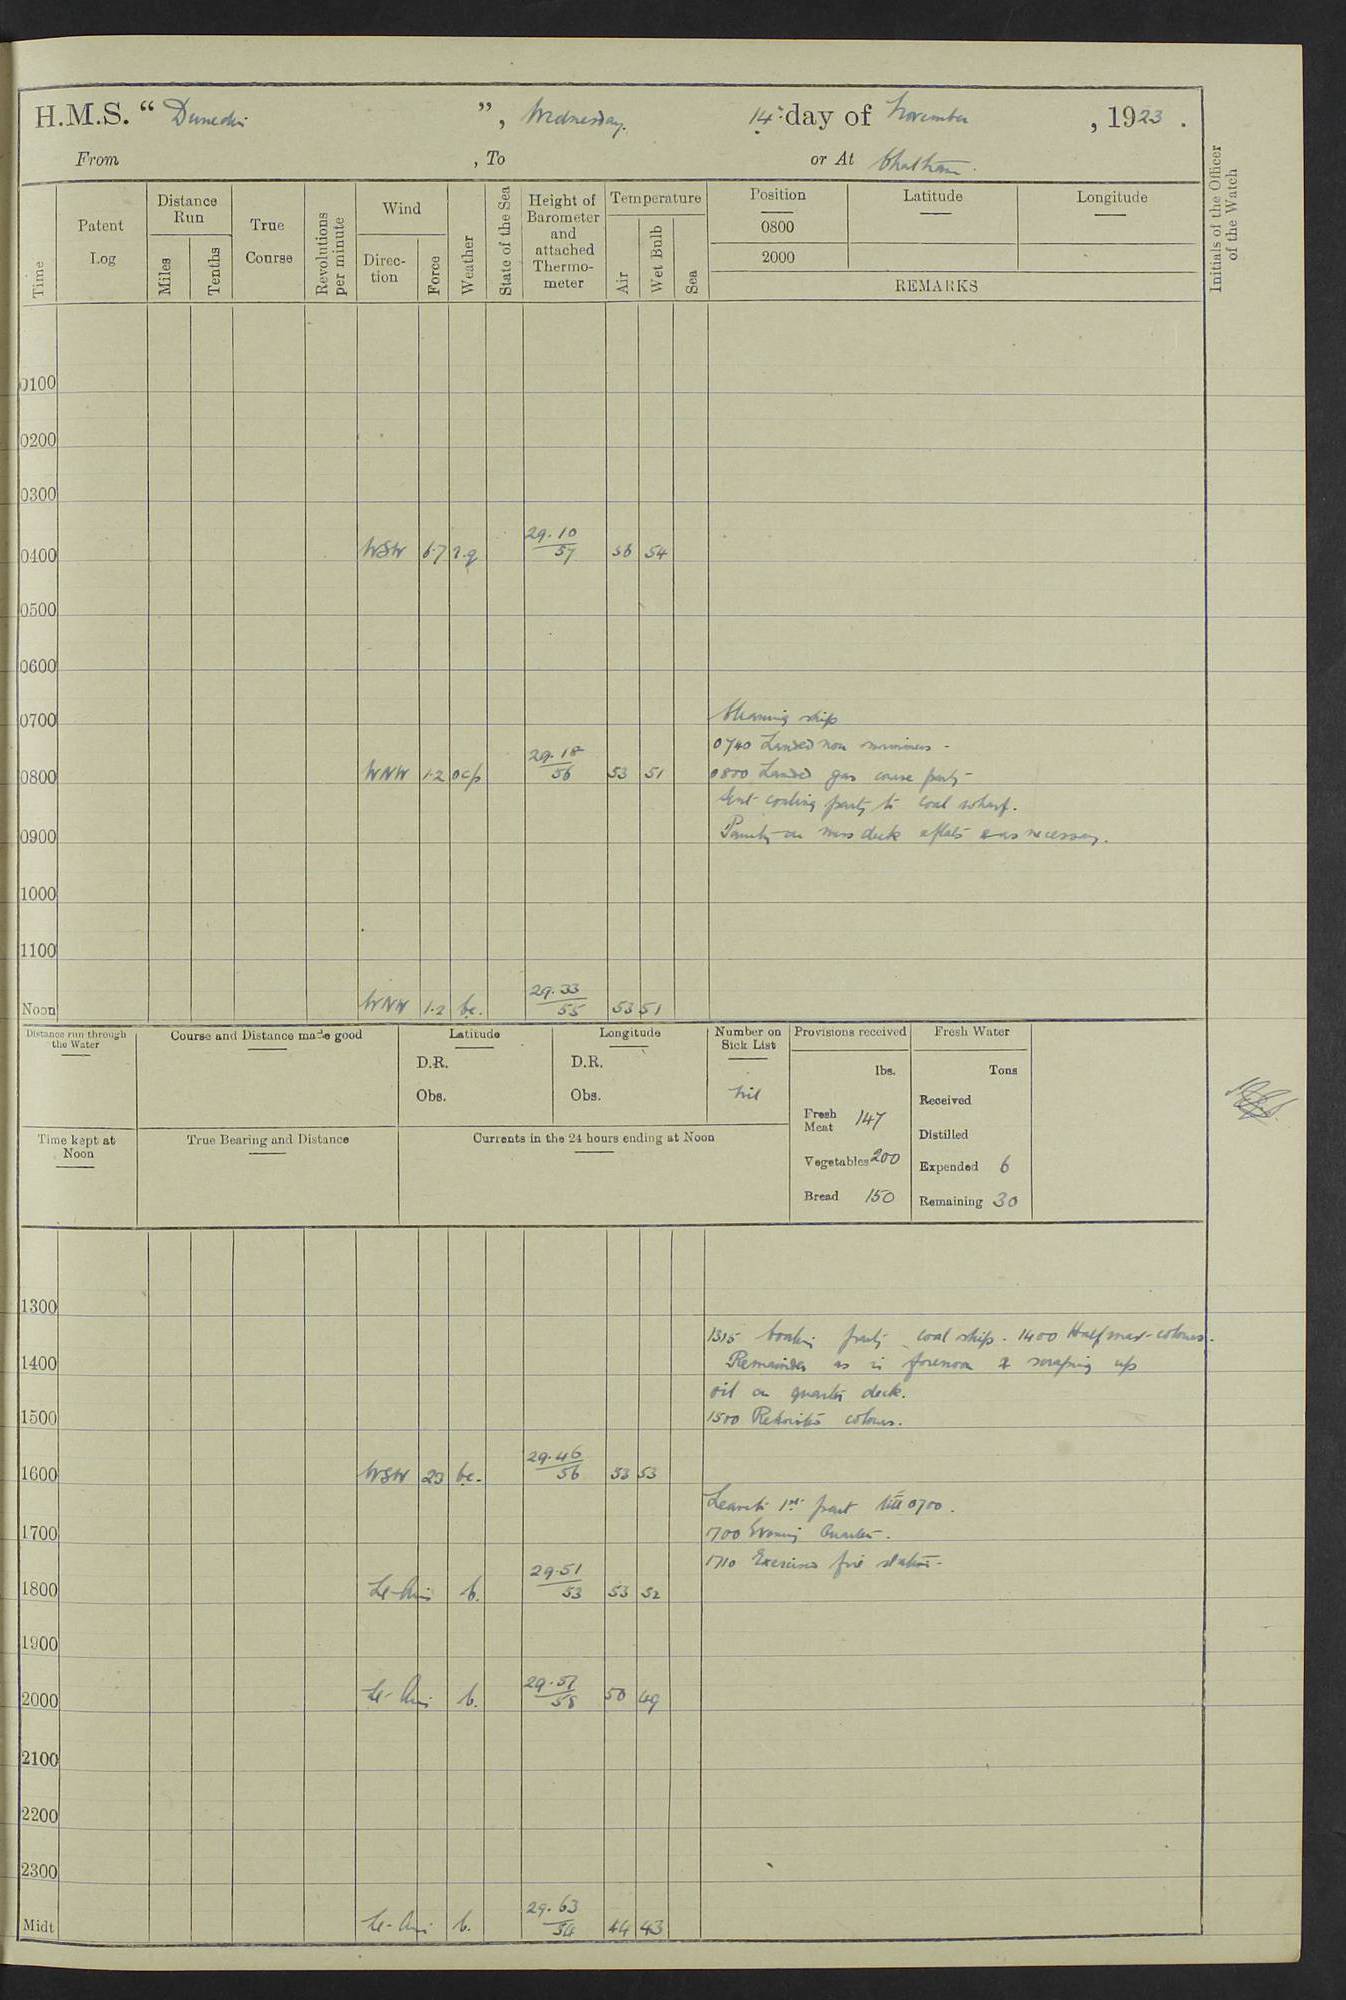 H.M.S. " Dunedin ", Wednesday. 14th day of November, 1923.
From , To or At Chatham.
Time
Patent Log
Distance Run
Miles
Tenths
True Course
Revolutions per minute
Wind
Direction
Force
Weather
State of the Sea
Height of Barometer and attached Thermometer
Temperature
Air
Wet Bulb
Sea
Position
Latitude
Longitude
0800
2000
REMARKS
Initials of the Officer of the Watch
0100
0200
0300
0400 WSW 6.7 r.q 29.10/57 56 54
0500
0600
0700 Cleaning ship
0740 Landed non swimmers -
0800 WNW 1.2 ocp 29.18/56 53 51 0800 Landed gas course party -
Sent coaling party to coal wharf.
0900 Painting on mess deck aflats & as necessary.
1000
1100
Noon WNW 1.2 bc. 29.33/55 53 51
Distance run through the Water
Course and Distance made good
Latitude
D.R.
Obs.
Longitude
D.R.
Obs.
Number on Sick List
Nil
Provisions received
lbs.
Fresh Meat 147
Vegetables 200
Bread 150
Fresh Water
Tons
Received
Distilled
Expended 6
Remaining 30
Time kept at Noon
True Bearing and Distance
Currents in the 24 hours ending at Noon
1300
1315 party coal ship. 1400 Half mast colours.
1400 Remainder as in forenoon & scraping up
oil on quarter deck.
1500 1500 Rehoisted colours.
1600 WSW 23 bc. 29.46/56 53 53
Leave to 1st part till 0700.
1700 1700 Evening Quarters.
1710 Exercised fire stations.
1800 Lt-Airs b. 29.51/53 53 52
1900
2000 Lt-Airs b. 29.57/58 50 49
2100
2200
2300
Midt Lt-Airs b. 29.63/54 44 43